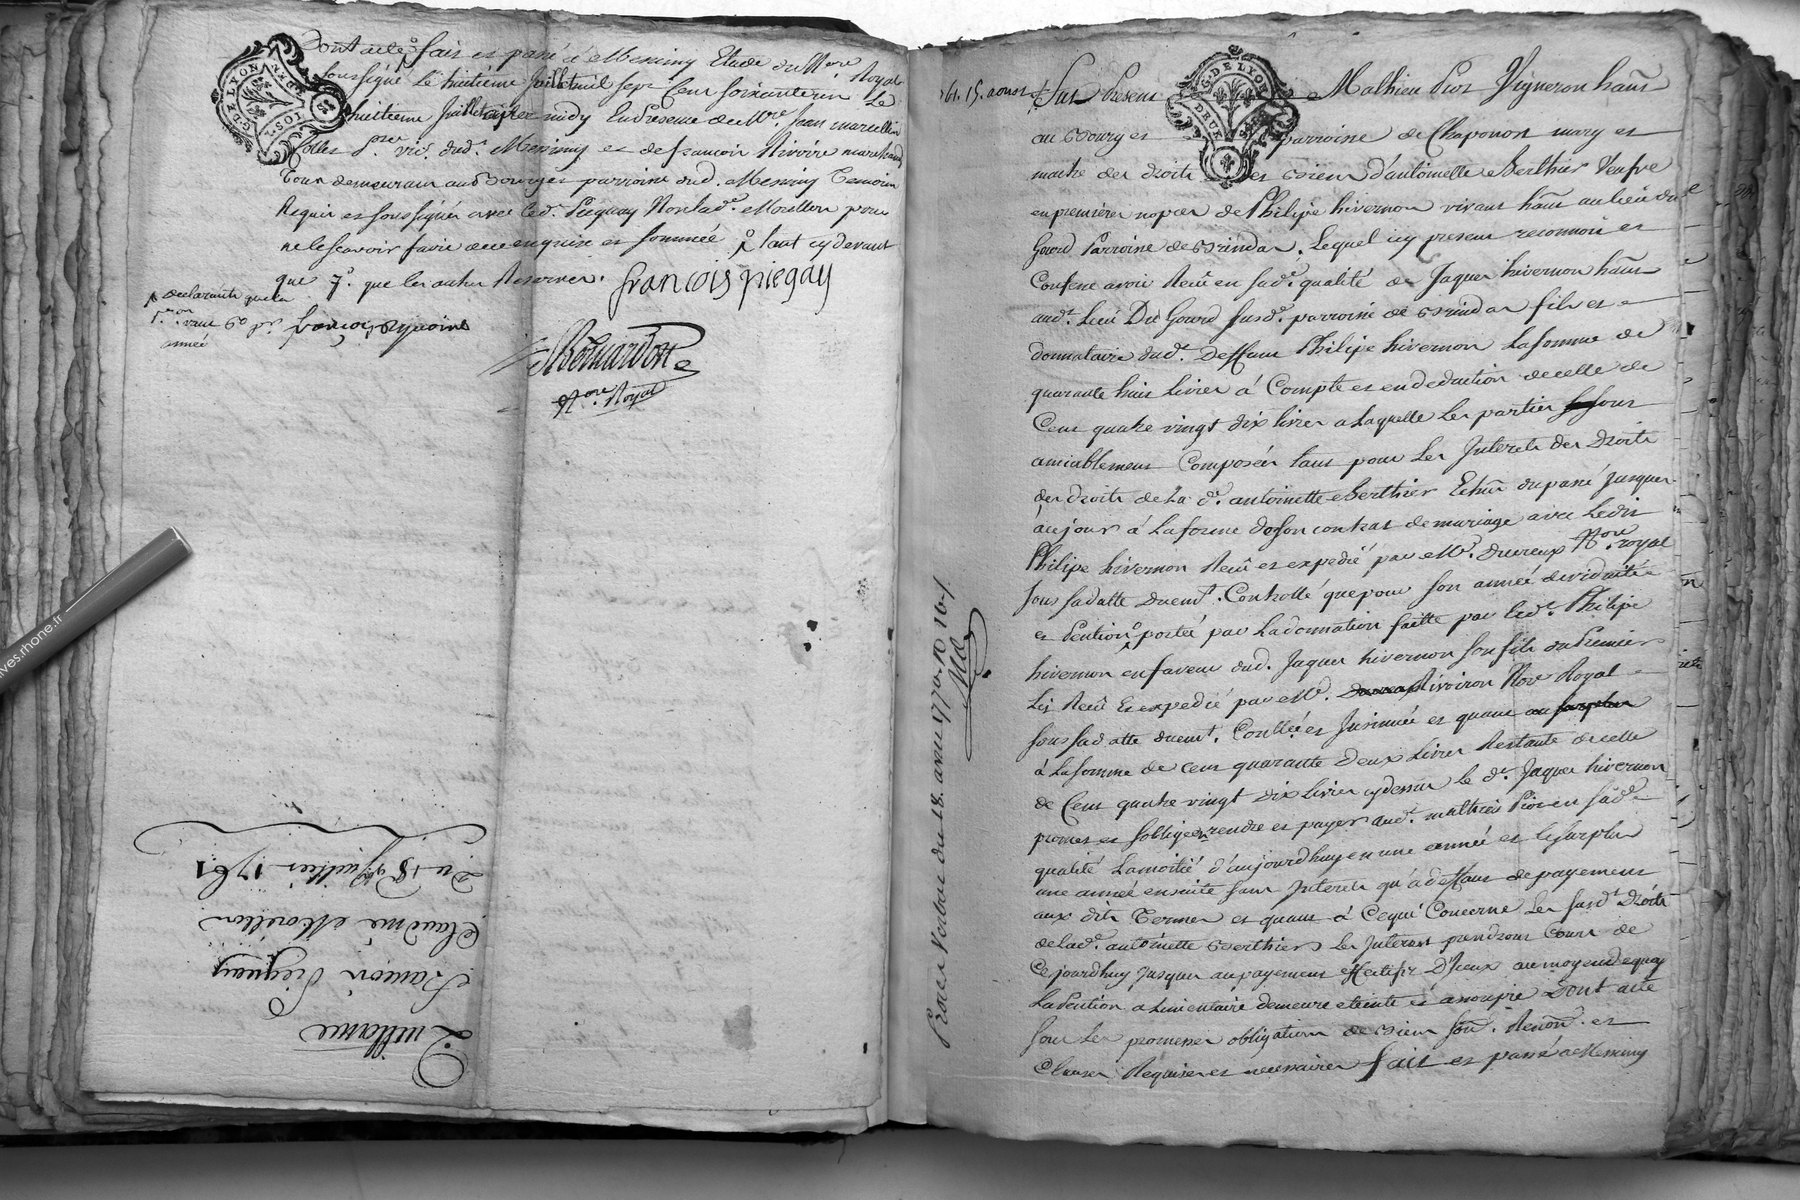 Dont acte fait et passé a Messimy Etude du Nore Royal
soussigné Le huitieme Juillet mil sept Cent soixante un Le
huitieme Juillet apres midy En presence de Mre Jean marcellin
Colles pre vic. dud. Messimy et de francois Rivoire marchand
Tous demeurant aud Bourg et parroisse dud. Messimy Temoins
Requis et soussignés avec led. Piegnay Non lad. Morellon pour
ne le scavoir faire de ce enquise et sommée tant cy devant
que 7. que les autres Reserver.
francois piegay
declarants que la
année
francois Rivoire
Nore Royal
G. DE LYON
Quittance
francois Piegnay
Claudine Morellon
Du 8 Juillet 1761
ives.rhone.fr
61. 15. aoust
Fut Present Mathieu Pior Vigneron hant
G. DE LYON
DEUX
au Bourg et parroisse de Chaponost mary et
maitre des droits et biens d'antoinette Berthier Veufve
en premieres nopces de Philipe hivernon vivant hant au lieu du
Gourd Parroisse de Brindas, Lequel icy present reconnoit et
Confesse avoir Receu en sad. qualité de Jaques hivernon hant
aud. Lieu Du Gourd susd. parroisse de Brindas fils et
donnataire dud. Deffunt Philipe hivernon La somme de
quarante huit Livres à Compte et en deduction de celle de
Cent quatre vingt dix livres a Laquelle Les parties sont
amiablement Composées tant pour Les Interets des Droits
des droits de La d. antoinette Berthier Echus du passé Jusques
au jour à La forme de son contrat de mariage avec Ledit
Philipe hivernon Receu et expedié par Me. Nore royal
sous sa datte duemt. Controllé que pour son année de viduité
et Pention portée par La donnation faitte par led. Philipe
hivernon en faveur dud. Jaques hivernon son fils du Premier
Lit Receu Et expedié par Me. Rivoiron Nore Royal
sous sa datte duemt. Conllée et Insinuée et quant au surplus
à La somme de cent quarante Deux Livres Restante de celle
de Cent quatre vingt dix Livres cy dessus le d. Jaques hivernon
promet et s'oblige rendre et payer aud. mathieu Pior en sad.
qualité La moitié d'aujourdhuy en une année et le surplus
une année ensuite sans Interets qu'à deffaut de payement
aux dits Termes et quant à Ce qui Concerne Les susd. Droits
de lad. antoinette Berthier Les Interets prendront Cours de
Ce jourdhuy Jusques au payement Effectif D'Iceux au moyen de quoy
La Pention alimentaire demeure eteinte et assoupie Dont acte
sous Les promesses obligation de biens Renon. et
Clauses Requises et necessaires fait et passé a Messimy